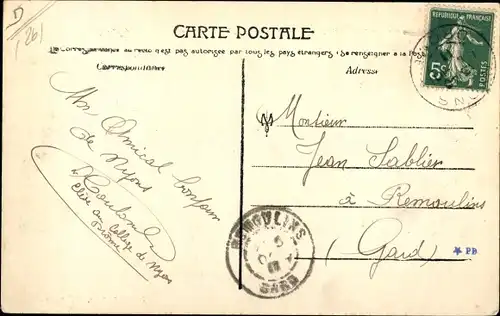 D
(26)
CARTE POSTALE
La Correspondance au recto n'est pas autorisée par tous les pays étrangers (Se renseigner à la Poste
Correspondance
Adresse
RÉPUBLIQUE FRANÇAISE
5c
POSTES
NYONS
Mon Amical bonjour
de Nyons
Elève au Collège de Nyons
Drôme
Monsieur
Jean Sablier
à Remoulins
(Gard)
REMOULINS
GARD
* PB